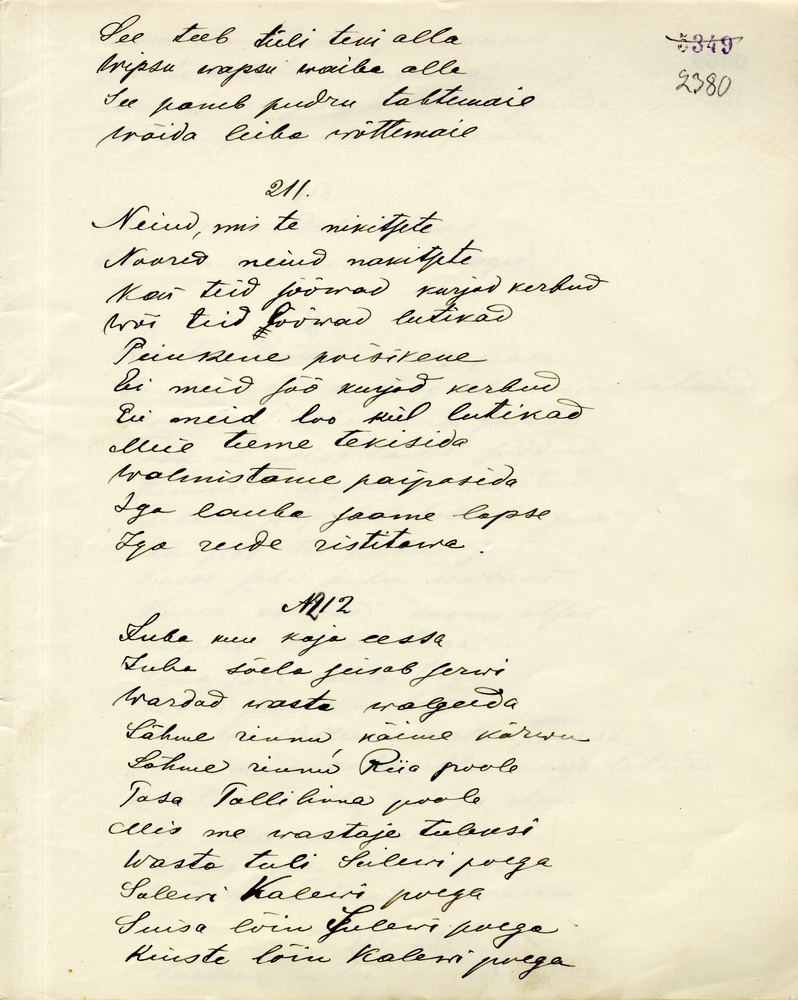 See teeb tüli teki alla
Wipsu wapsu waiba alla
See paneb pudru tahtemaie
Wõida leiba wõttemaie
5349
2380
211.
Neiud, mis te nikitsete
Noored neiud nakitsete
Kas teid sööwad kurjad kerbud
Wõi teid sööwad lutikad
Peiukene poisikene
Ei meid söö kurjad kerbud
Ei meid loo kül lutikad
Meie teeme tekisida
Walmistame paipasida
Iga lauba saame lapse
Iga rede ristitawa.
212
Juba kuu kaja eessa
Juba sõela seisab serwi
Wardad wasta walgeida
Lähme rinnu käime kärwu
Lähme rinnu Riia poole
Tasa Tallilinna poole
Mis me wastaje tuleksi
Wasta tuli Sulewi poega
Sulewi Kalewi poega
Suisa lõin Sulewi poega
Kuiste lõin Kalewi poega